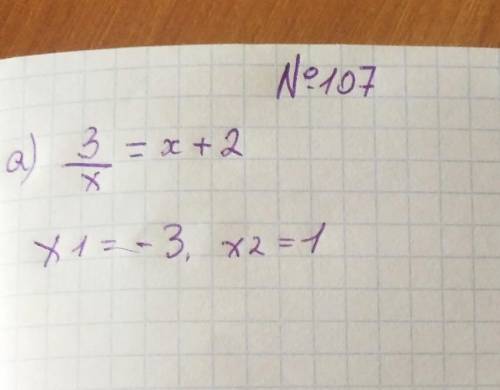 №107
а) 3/x = x + 2
x1 = -3, x2 = 1